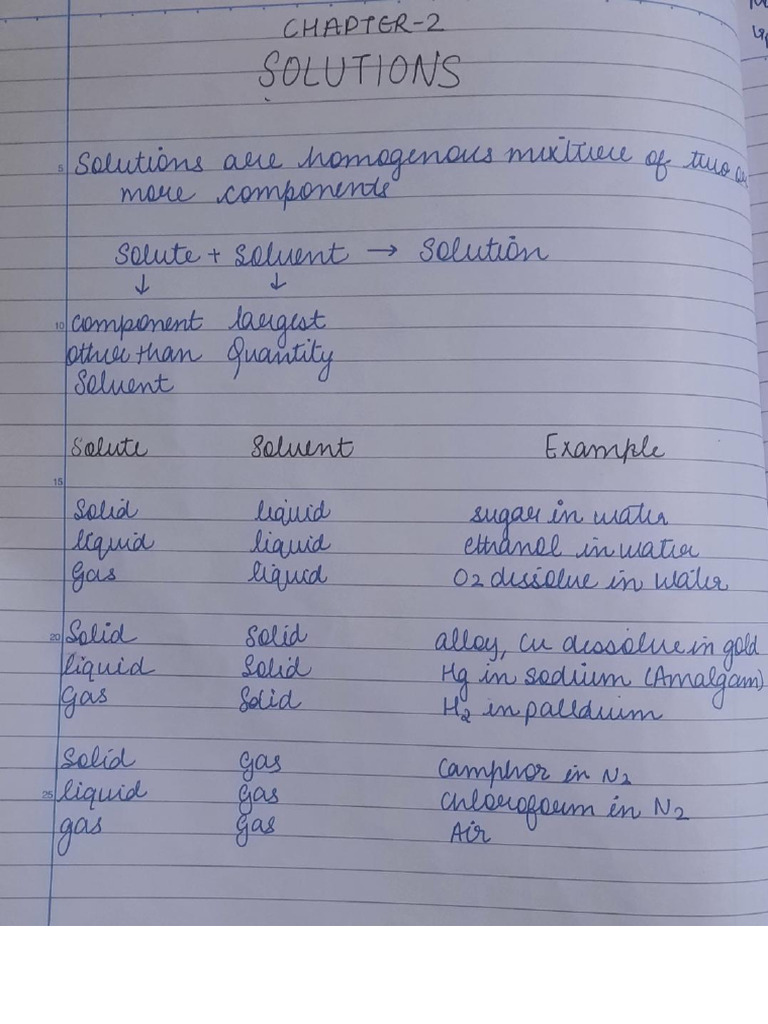 CHAPTER-2
SOLUTIONS
5 Solutions are homogenous mixture of two or
more components
Solute + Solvent → Solution
↓ ↓
10 component largest
other than Quantity
Solvent
Solute Solvent Example
15
Solid liquid sugar in water
liquid liquid ethanol in water
Gas liquid O2 dissolve in water
20 Solid Solid alloy, Cu dissolve in gold
liquid Solid Hg in sodium (Amalgam)
Gas Solid H2 in palladium
Solid gas Camphor in N2
25 liquid gas Chloroform in N2
gas Gas Air